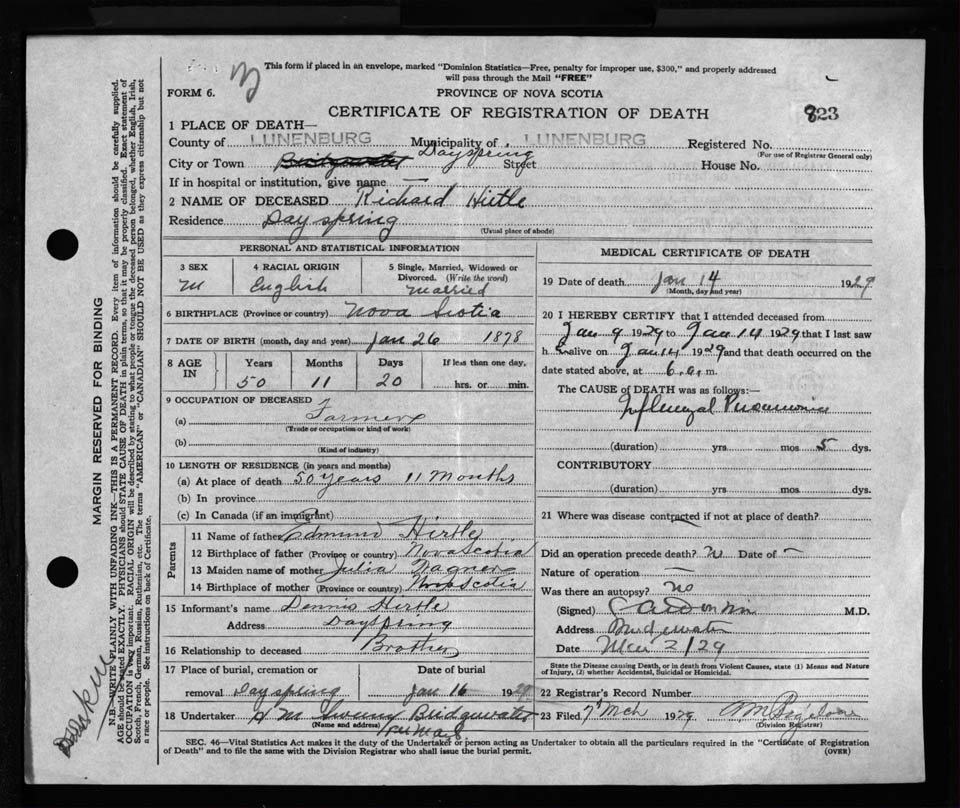 This form if placed in an envelope, marked "Dominion Statistics—Free, penalty for improper use, $300," and properly addressed
will pass through the Mail "FREE"
FORM 6.
PROVINCE OF NOVA SCOTIA
CERTIFICATE OF REGISTRATION OF DEATH
823
1 PLACE OF DEATH—
County of LUNENBURG Municipality of LUNENBURG Registered No.
(For use of Registrar General only)
City or Town Bridgewater Dayspring Street House No.
If in hospital or institution, give name —
2 NAME OF DECEASED Richard Hirtle
Residence Dayspring
(Usual place of abode)
PERSONAL AND STATISTICAL INFORMATION
3 SEX
M
4 RACIAL ORIGIN
English
5 Single, Married, Widowed or
Divorced. (Write the word)
Married
6 BIRTHPLACE (Province or country) Nova Scotia
7 DATE OF BIRTH (month, day and year) Jan 26 1878
8 AGE IN
Years Months Days If less than one day,
50 11 20 hrs. or min.
9 OCCUPATION OF DECEASED
(a) Farmer
(Trade or occupation or kind of work)
(b)
(Kind of industry)
10 LENGTH OF RESIDENCE (in years and months)
(a) At place of death 50 years 11 Months
(b) In province
(c) In Canada (if an immigrant)
Parents
11 Name of father Edmund Hirtle
12 Birthplace of father (Province or country) Nova Scotia
13 Maiden name of mother Julia Wagner
14 Birthplace of mother (Province or country) Nova Scotia
15 Informant's name Dennis Hirtle
Address Dayspring
16 Relationship to deceased Brother
17 Place of burial, cremation or Date of burial
removal Dayspring Jan 16 1929
18 Undertaker Bridgewater
(Name and address)
MEDICAL CERTIFICATE OF DEATH
19 Date of death Jan 14 1929
(Month, day and year)
20 I HEREBY CERTIFY that I attended deceased from
Jan 9 1929 to Jan 14 1929 that I last saw
h alive on Jan 14 1929 and that death occurred on the
date stated above, at 6 m.
The CAUSE OF DEATH was as follows:—
Influenzal Pneumonia
(duration) yrs mos 5 dys.
CONTRIBUTORY
(duration) yrs. mos. dys.
21 Where was disease contracted if not at place of death?
Did an operation precede death? Date of —
Nature of operation —
Was there an autopsy? no
(Signed) M.D.
Address Bridgewater
Date Mar 2/29
State the Disease causing Death, or in death from Violent Causes, state (1) Means and Nature
of Injury, (2) whether Accidental, Suicidal or Homicidal.
22 Registrar's Record Number
23 Filed 7 Mch 1929
(Division Registrar)
SEC. 46—Vital Statistics Act makes it the duty of the Undertaker or person acting as Undertaker to obtain all the particulars required in the "Certificate of Registration
of Death" and to file the same with the Division Registrar who shall issue the burial permit. (OVER)
MARGIN RESERVED FOR BINDING
N.B—WRITE PLAINLY WITH UNFADING INK—THIS IS A PERMANENT RECORD. Every item of information should be carefully supplied.
AGE should be stated EXACTLY. PHYSICIANS should STATE CAUSE OF DEATH in plain terms, so that it may be properly classified. Exact statement of
OCCUPATION is very important. RACIAL ORIGIN will be described by stating to what people or tongue the deceased person belonged, whether English, Irish,
Scotch, French, German, Russian, Ruthenian, etc. The terms "AMERICAN" or "CANADIAN" SHOULD NOT BE USED as they express citizenship but not
a race or people. See instructions on back of Certificate.